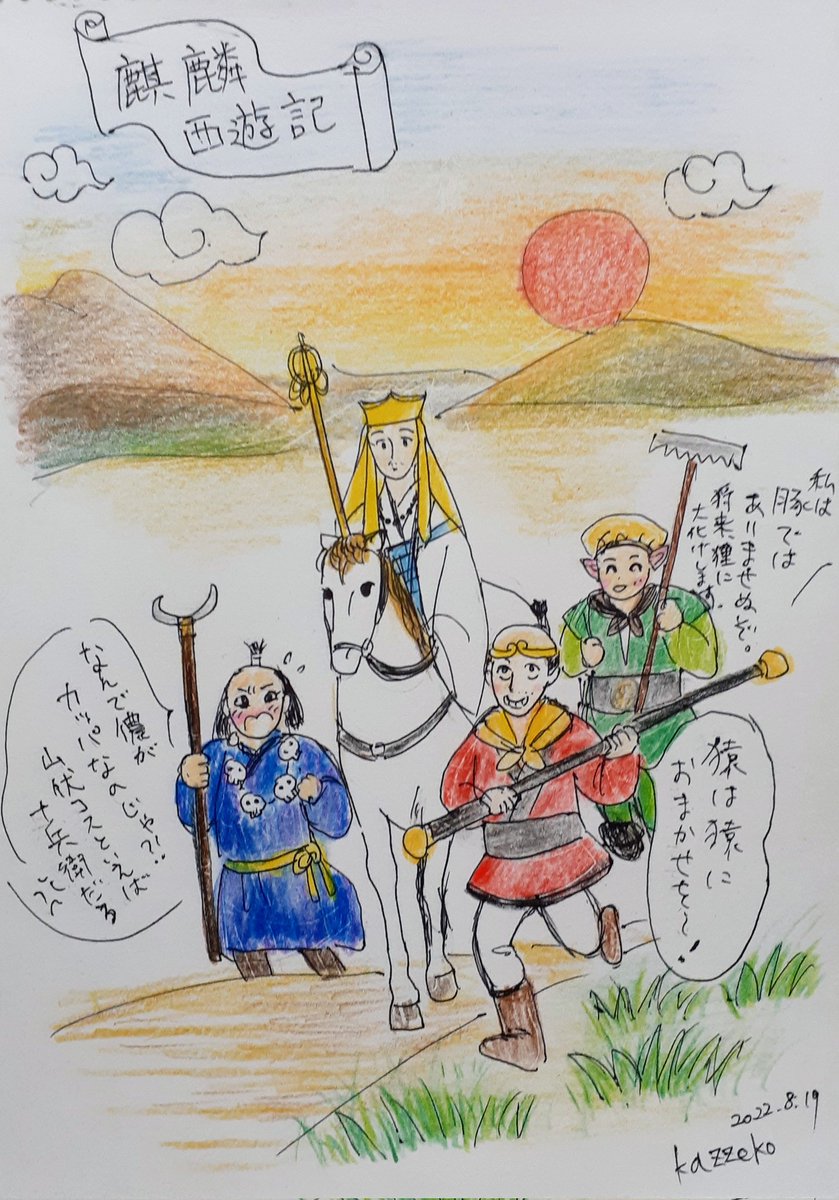 麒麟
西遊記
私は
豚では
ありませぬぞ。
将来、狸に
大化けします。
猿は猿に
おまかせを〜!
なんで儂が
カッパなのじゃ?!
山伏コスといえば
十兵衛だろ
2022.8.19
kazzeko